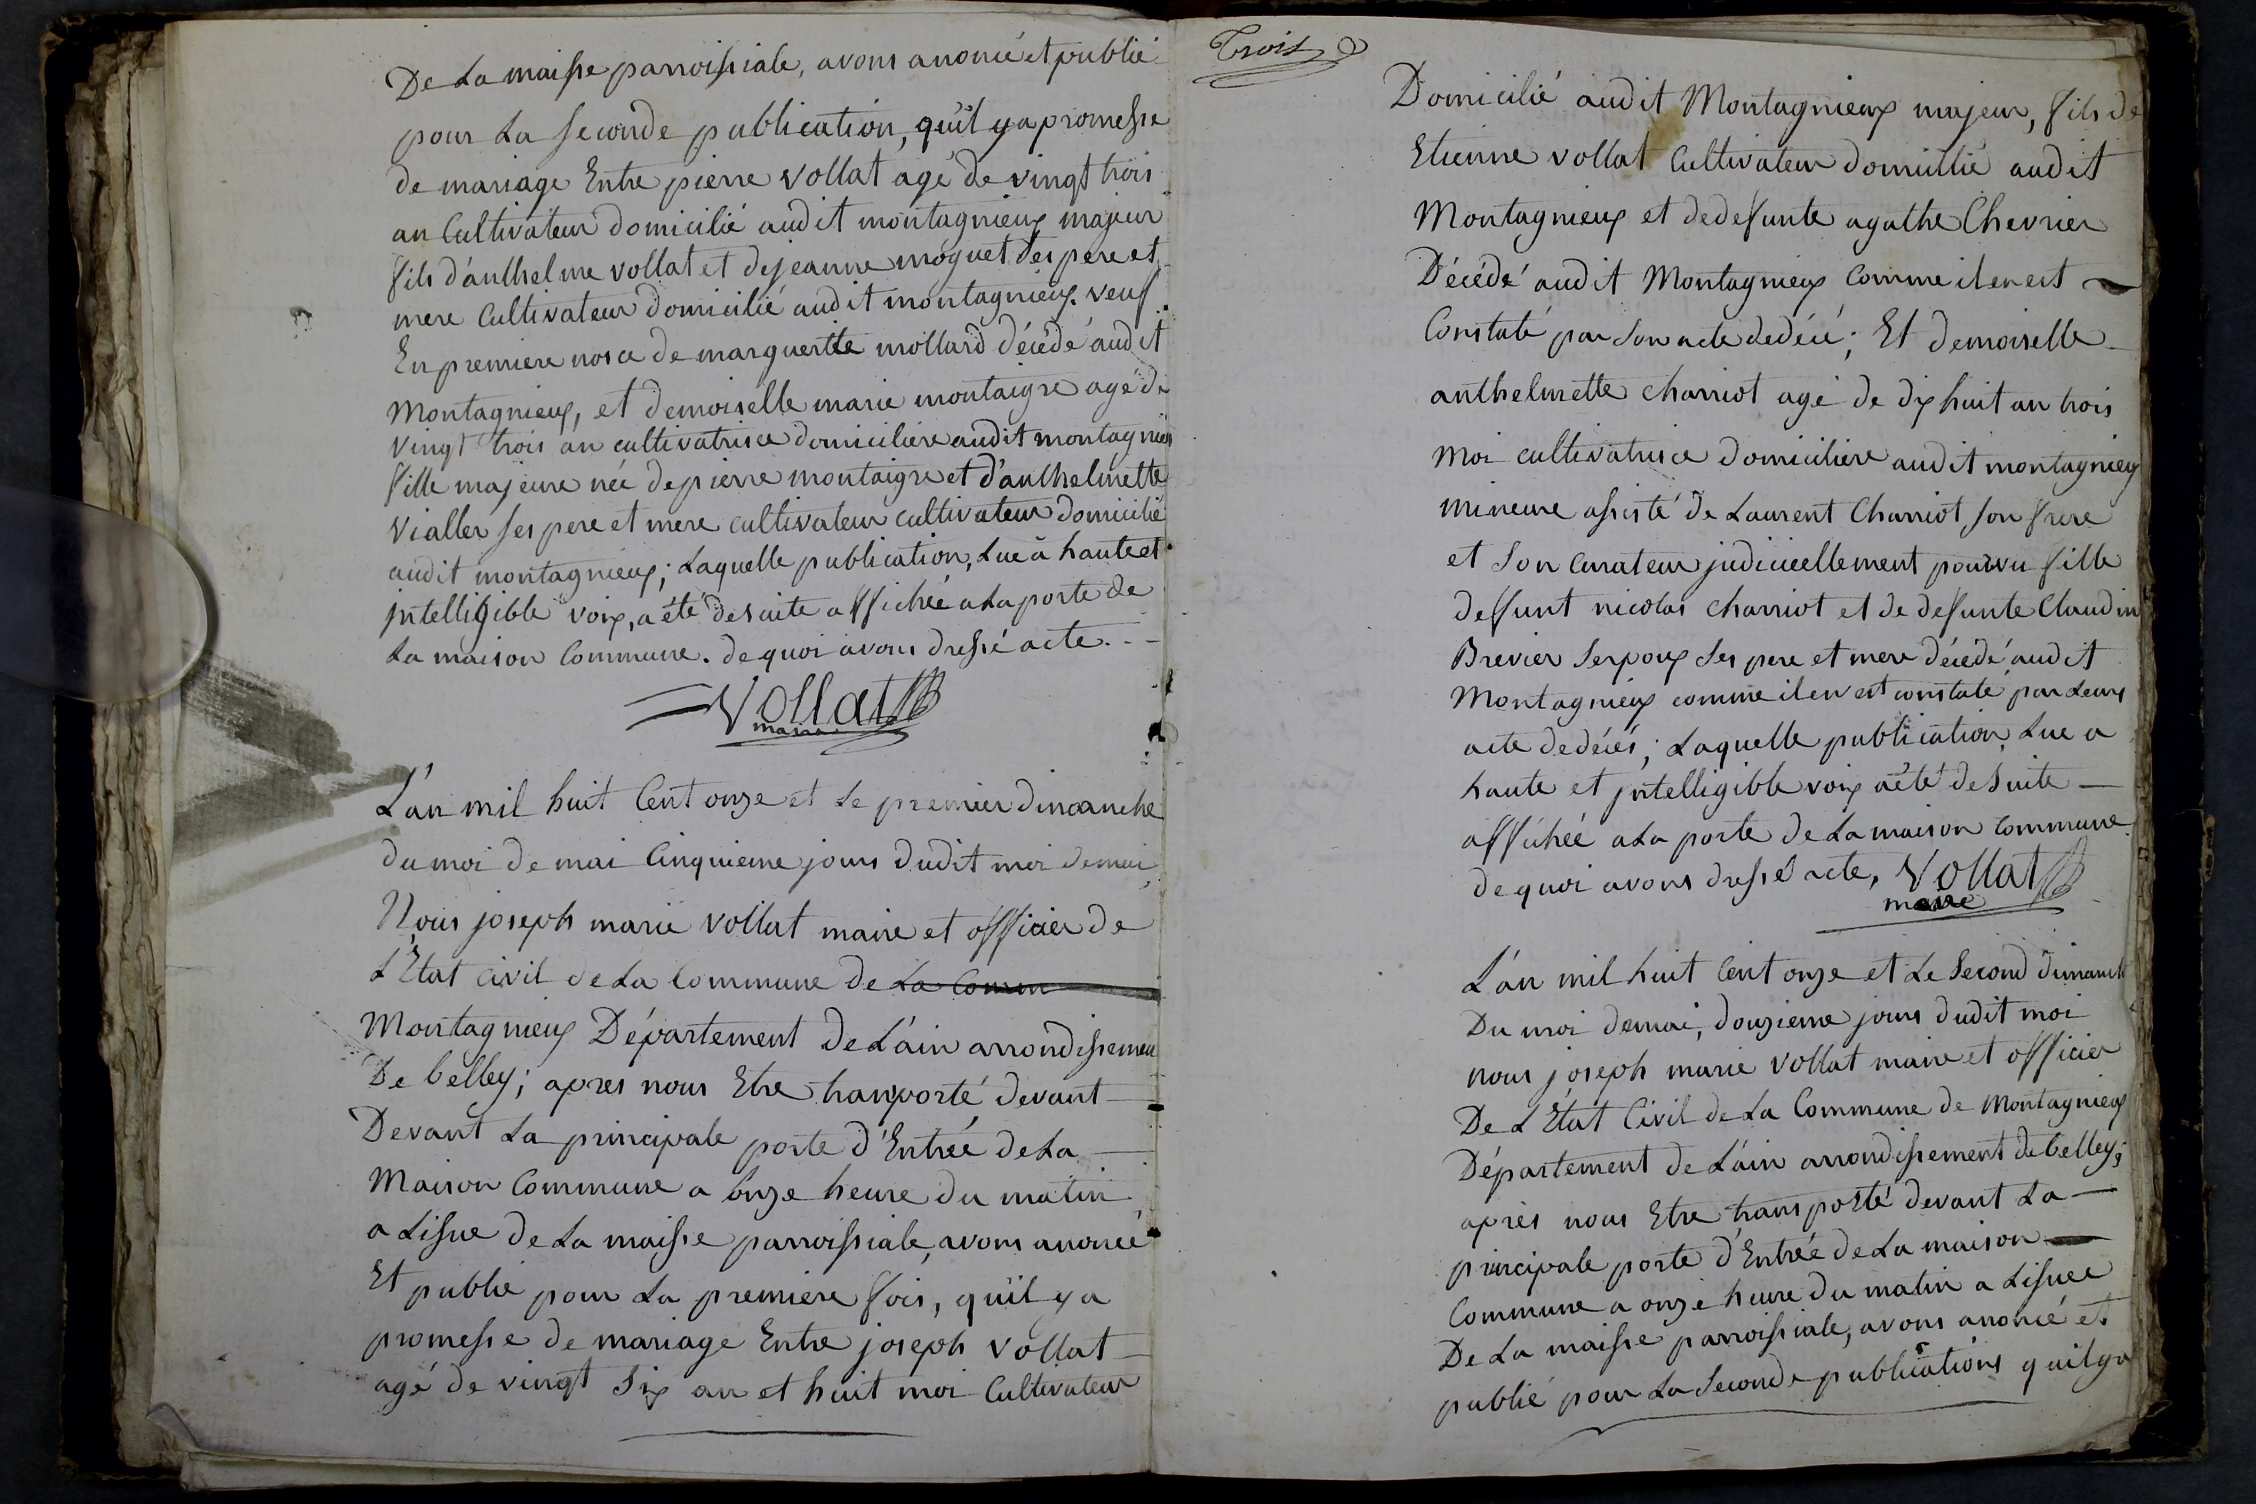 De La maisse parroissiale, avons anoncé et publié
pour La seconde publication, quïl y a promesse
de mariage Entre pierre vollat agé de vingt trois
an Cultivateur domicilié audit montagnieux majeur
fils d'anthelme vollat et de jeanne moguet Ses pere et
mere Cultivateur domicilié audit montagnieux. veuf
En premiere nosce de marguerite mollard décédé audit
Montagnieux, et demoiselle marie montaigre agé de
vingt trois an cultivatrisce domiciliere audit montagnieux
fille majeure née de pierre montaigre et d'anthelmette
vialler ses pere et mere cultivateur cultivateur domicilié
audit montagnieux; Laquelle publication, Lue à haute et
intelligible voix, a été desuite affichée a La porte de
La maison Commune. de quoi avons dressé acte. -
Vollat
maire
L'an mil huit Cent onze et Le premier dimanche
du moi de mai Cinquieme jours dudit moi de mai
Nous joseph marie vollat maire et officier de
L'Etat Civil de La Commune de La Comm
Montagnieux Département de L'ain arrondissemen
De belley; apres nous Etre tranporté devant
Devant La principale porte d'Entrée de La
Maison Commune a onze heure du matin
a Lissue de La maisse parroissiale, avons anoncé
Et publié pour La premiere fois, quïl y a
promesse de mariage Entre joseph vollat
agé de vingt Six an et huit moi Cultivateur
Trois
Domicilié audit Montagnieux majeur, fils de
Etienne vollat Cultivateur domicilié audit
Montagnieux et de defunte agathe Chevrier
Décédé audit Montagnieux Comme il en est
Constaté par Son acte dedécé; Et demoiselle
anthelmette charriot agé de dix huit an trois
moi cultivatrisce domiciliere audit montagnieux
mineure assisté de Laurent Charriot Son frere
et Son Curateur judiciellement pourvu fille
deffunt nicolas charriot et de defunte Claudin
Brevier Serpoux Ses pere et mere décédé audit
Montagnieux comme il en est constaté par Leurs
acte dedécés; Laquelle publication Lue a
haute et intelligible voix a été desuite
affichéé a La porte de La maison Commune
de quoi avons dressé acte, Vollat
maire
L'an mil huit Cent onze et Le Second dimanch
Du moi demai, douzieme jours dudit moi
nous joseph marie vollat maire et officier
De L'Etat Civil de La Commune de Montagnieux
Département de L'ain arrondissement de belley;
après nous Etre transporté devant La
principale porte d'Entrée de La maison
Commune a onze heure du matin a Lissuee
De La maisse parroissiale, avons anoncé et
publié pour La Seconde publications quil y a